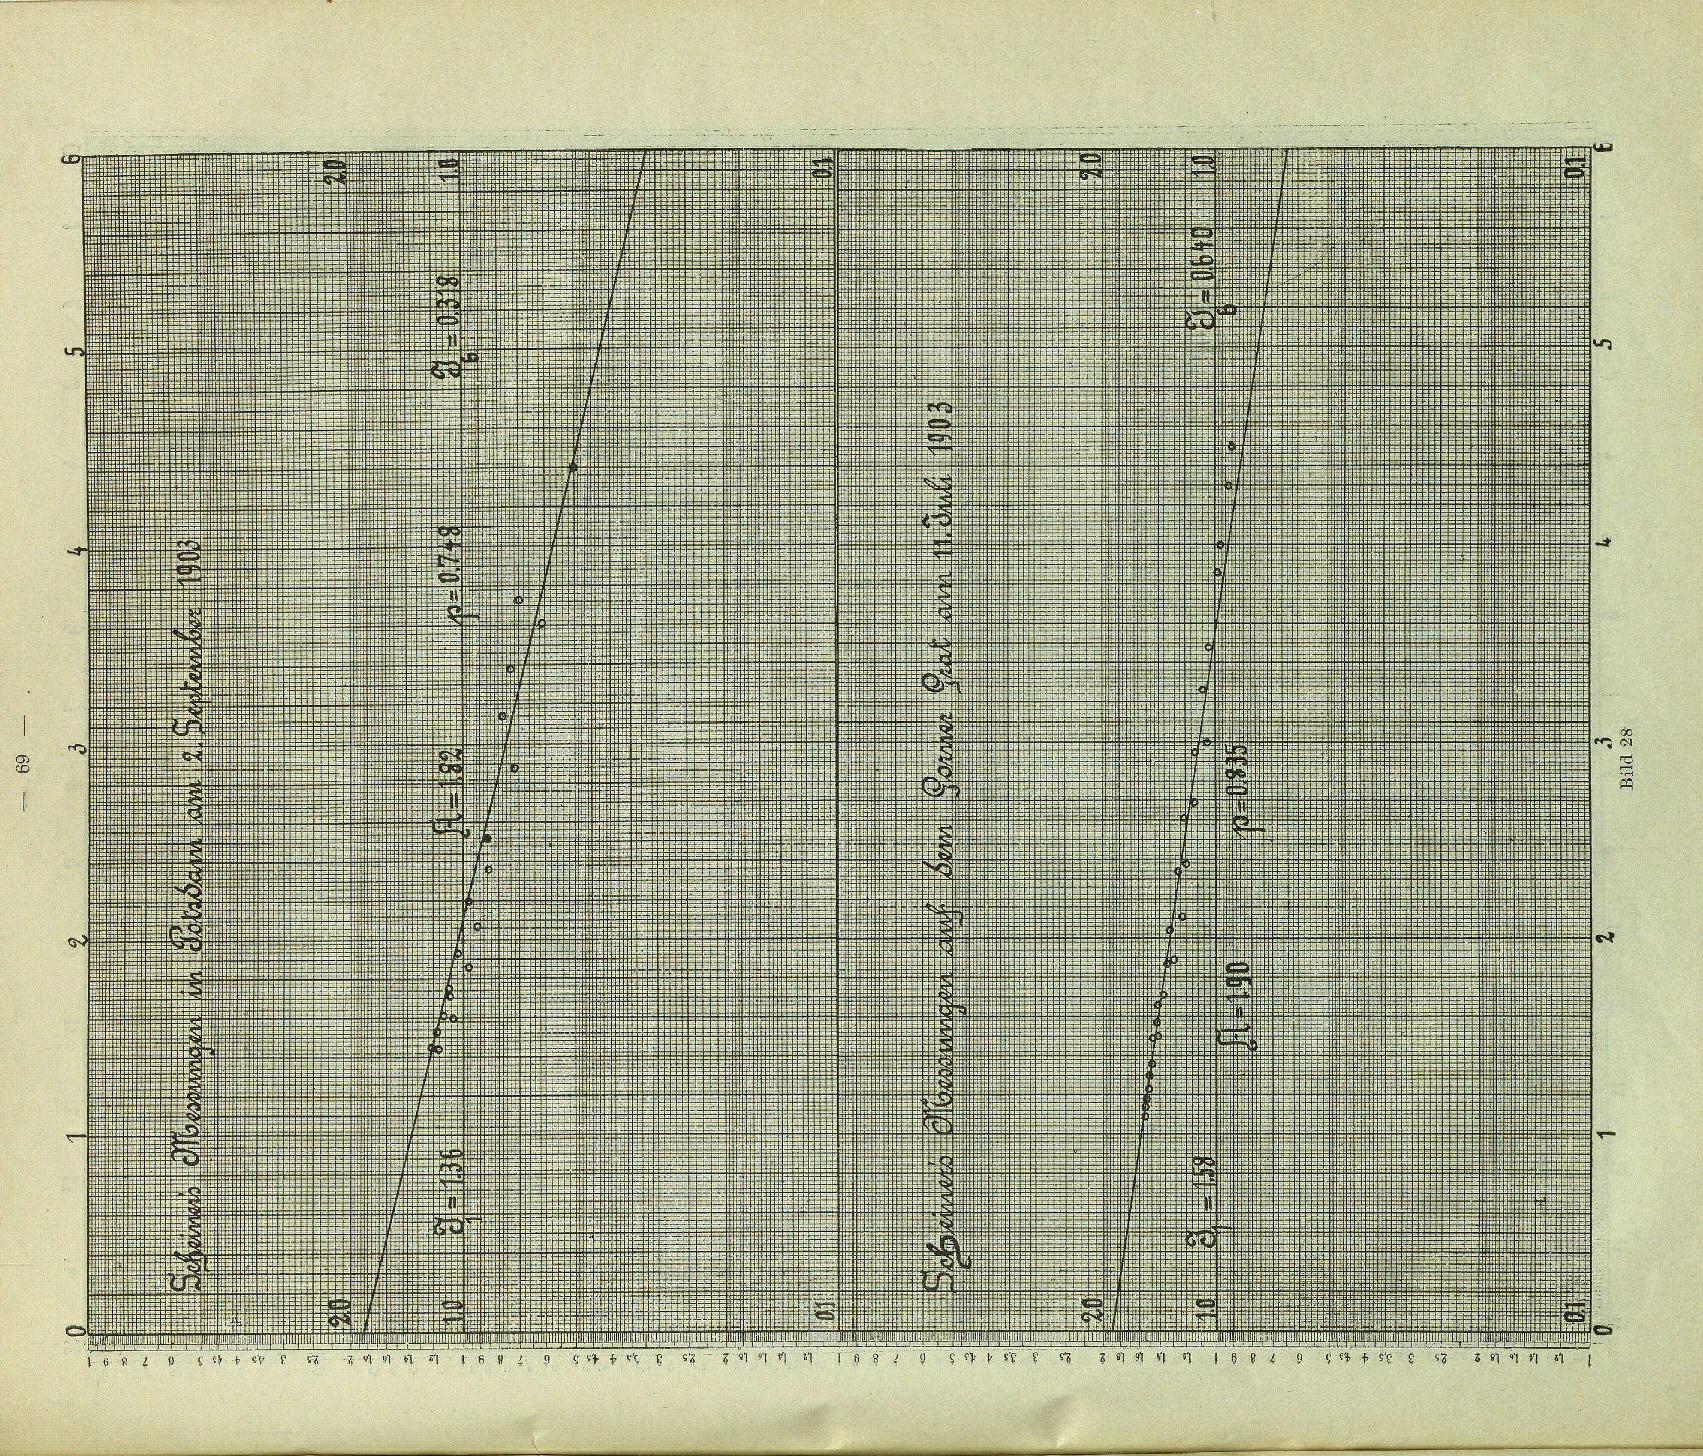 — 69 —
Scheiner's Messungen in Potsdam am 2. September 1903
2.0
2.0
1.0
J₁ = 1.36
A = 1.82
p = 0.748
J₆ = 0.318
1.0
0.1
0.1
0 1 2 3 4 5 6
Scheiner's Messungen auf dem Gorner Grat am 11. Juli 1903
2.0
2.0
1.0
J₁ = 1.58
J₆ = 0.640
1.0
A = 1.90
p = 0.835
0.1
0.1
0 1 2 3 4 5 6
Bild 28